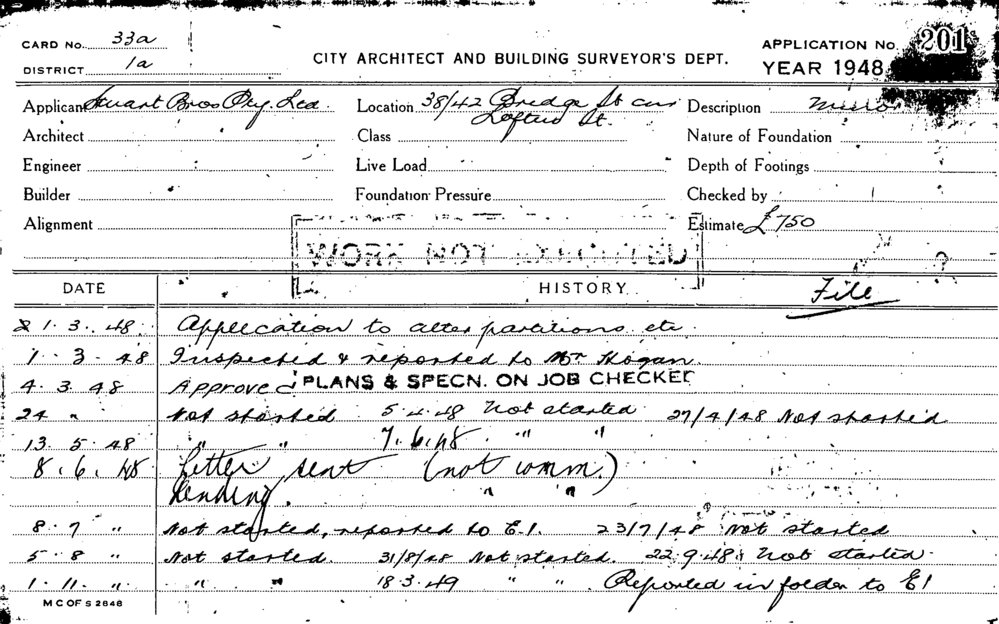 CARD No. 33a
DISTRICT 1a
CITY ARCHITECT AND BUILDING SURVEYOR'S DEPT.
APPLICATION No. 201
YEAR 1948
Applicant Stuart Bros Pty. Ltd.
Location 38/42 Bridge St cnr
Loftus St.
Description
Architect
Class
Nature of Foundation
Engineer
Live Load
Depth of Footings
Builder
Foundation Pressure
Checked by
Alignment
Estimate £750
WORK NOT
DATE
HISTORY
File
1. 3. 48. Application to alter partitions etc
1. 3. 48 Inspected & reported to Mr Hogan.
4. 3. 48 Approved PLANS & SPECN. ON JOB CHECKED
24 " Not started 5.4.48 Not started 27/4/48 Not started
13. 5. 48 " " 7.6.48. " "
8. 6. 48 Letter sent (not comm.)
Pending. " "
8. 7 " Not started, reported to E.I. 23/7/48 Not started
5. 8 " Not started. 31/8/48 Not started. 22.9.48 Not started.
1. 11. " " " 18.3.49 " " Reported in folder to E1
M C OF S 2848